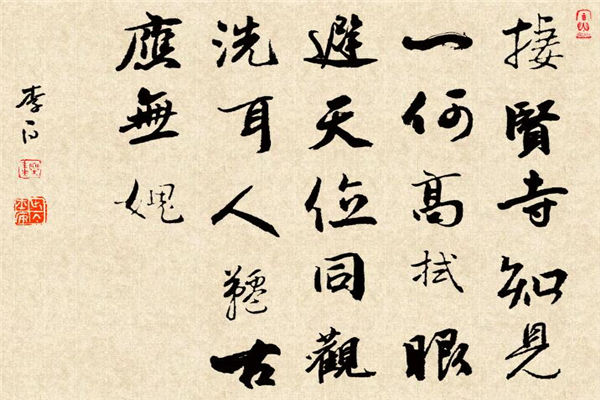 捿賢寺知見
一何高拭眼
避天位同觀
洗耳人韆古
應無媿
李白